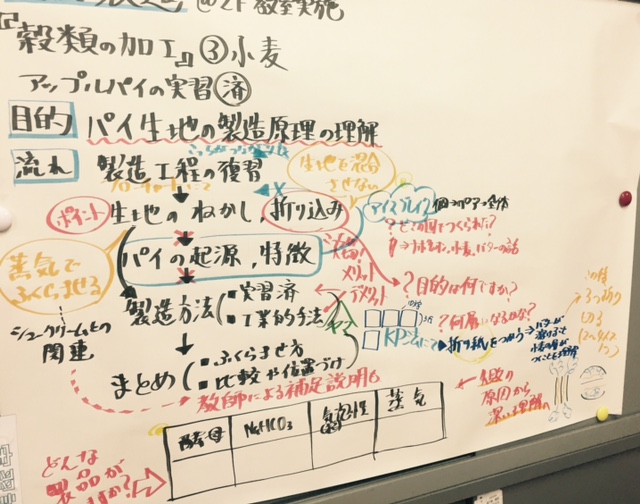 @2F 教室実施
『穀類の加工』③小麦
アップルパイの実習 済
目的 パイ生地の製造原理の理解
流れ 製造工程の復習
生地を混合させない
ポイント 生地のねかし、折り込み
アイスブレイク
個→ペア→全体
?どこの国でつくられた?
パイの起源、特徴
大切!
メリット
デメリット
?目的は何ですか?
蒸気でふくらませる
製造方法
・実習済
・工業的手法
?何層になるかな?
KP法にて
折り紙をつかう
シュークリームとの関連
まとめ
・ふくらませ方
・比較や位置づけ
教師による補足説明も
酵母 NaHCO3 気泡性 蒸気
原因から
深い理解へ
どんな製品がありますか?